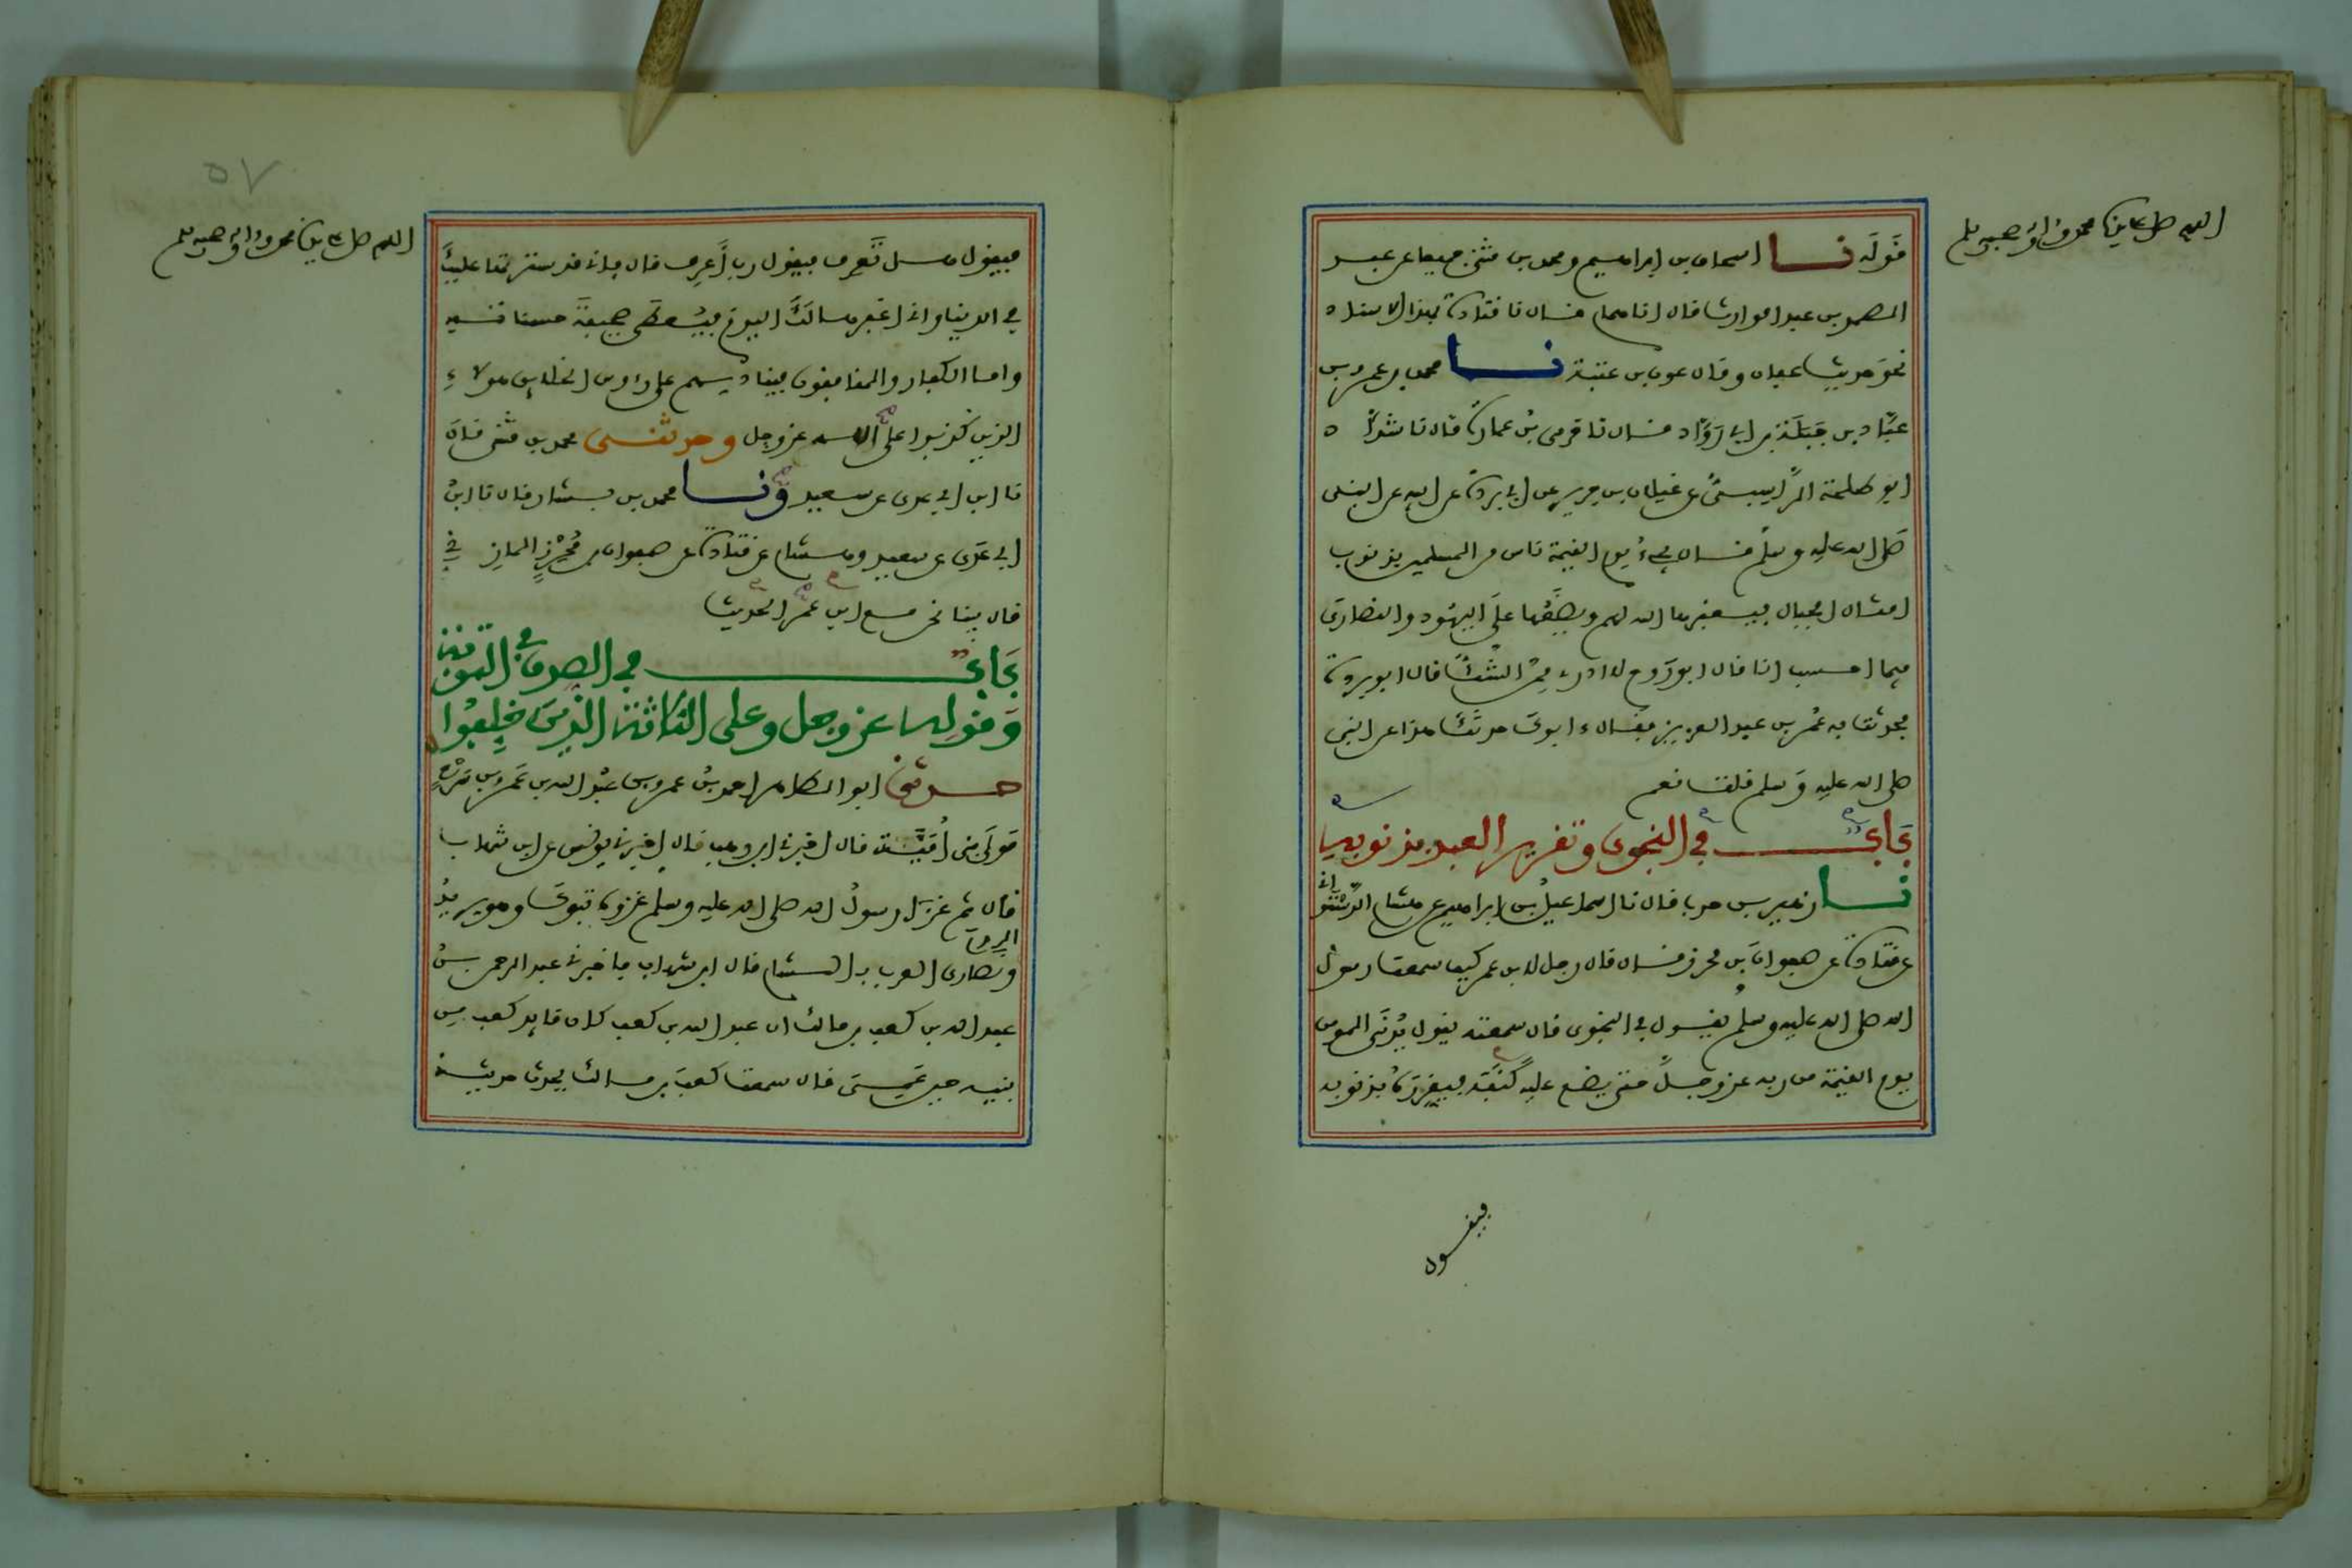 اللهم صل على سيدنا محمد وءاله وصحبه وسلم
قوله نا اسحاق بن ابراهيم ومحمد بن مثنى جميعا عن عبد
الصمد بن عبد الوارث قال انا همام قال نا قتادة بهذا الاسناد
نحو حديث عفان وقال عون بن عتبة نا محمد بن عمرو بن
عبّاد بن جَبَلَة بن ابي رَوّاد قال نا حرمي بن عمارة قال نا شدّاد
ابو طلحة الرّاسبيّ عن غيلان بن جرير عن ابي بردة عن ابيه عن النبي
صلى الله عليه وسلم قال يجيء يوم القيمة ناس من المسلمين بذنوب
امثال الجبال فيغفرها الله لهم ويضعها على اليهود والنصارى
فيما احسب انا قال ابو رَوح لا ادري ممن الشك قال ابو بردة
فحدثت به عُمر بن عبد العزيز فقال ءابوك حدثك هذا عن النبي
صلى الله عليه وسلم قلت نعم
باب في النجوى وتقرير العبد بذنوبه
نا زهير بن حرب قال نا اسماعيل بن ابراهيم عن هشام الدستوائي
عن قتادة عن صفوان بن محرز قال قال رجل لابن عمر كيف سمعت رسول
الله صلى الله عليه وسلم يقول في النجوى قال سمعته يقول يُدنَى المومن
يوم القيمة من ربه عز وجل حتى يضع عليه كنفه فيقرره بذنوبه
فيقول
٥٧
اللهم صل على سيدنا محمد وءاله وصحبه وسلم
فيقول هل تعرف فيقول رب أعرف قال فاني قد سترتها عليك
في الدنيا واني اغفرها لك اليوم فيُعطى صحيفة حسناته
واما الكفار والمنافقون فينادى بهم على رءوس الخلايق هولاء
الذين كذبوا على الله عز وجل وحدثني محمد بن مثنى قال
نا ابن ابي عدي عن سعيد ونا محمد بن بشار قال نا ابن
ابي عدي عن سعيد وهشام عن قتادة عن صفوان بن مُحْرِزٍ المازني
قال بينا نحن مع ابن عمر الحديث
باب في الصدق في التوبة
وقوله عز وجل وعلى الثلاثة الذين خلفوا
حدثني ابو الطاهر احمد بن عمرو بن عبد الله بن عمرو بن سَرْح
مولى بني أمية قال اخبرني ابن وهب قال اخبرني يونس عن ابن شهاب
قال ثم غزا رسول الله صلى الله عليه وسلم غزوة تبوك وهو يريد
الروم
ونصارى العرب بالشام قال ابن شهاب فاخبرني عبد الرحمن بن
عبد الله بن كعب بن مالك ان عبد الله بن كعب كان قايد كعب من
بنيه حين عَمِيَ قال سمعت كعب بن مالك يحدث حديثه